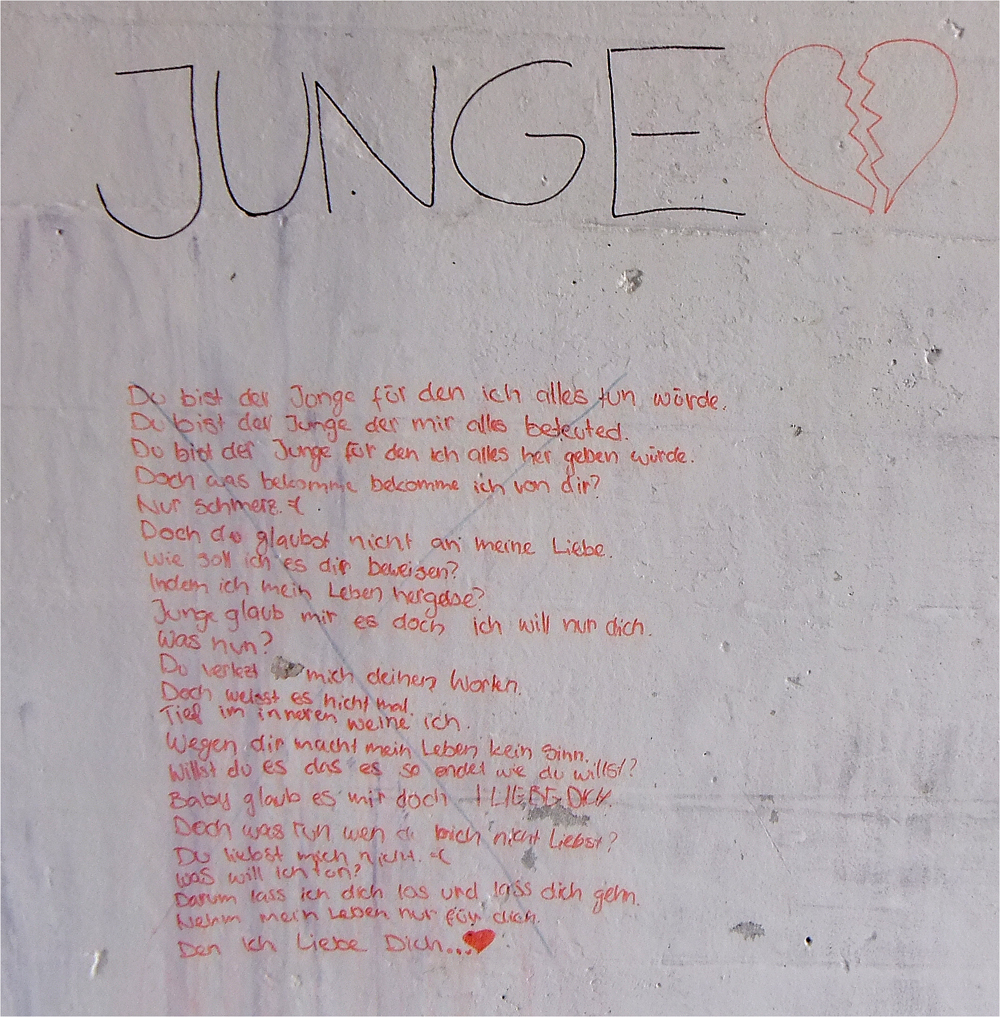 JUNGE
Du bist der Junge für den ich alles tun würde.
Du bist der Junge der mir alles beteuted.
Du bist der Junge für den ich alles her geben würde.
Doch was bekomme bekomme ich von dir?
Nur schmerz. :(
Doch du glaubst nicht an meine Liebe.
Wie soll ich es dir beweisen?
Indem ich mein Leben hergebe?
Junge glaub mir es doch ich will nur dich.
Was nun?
Du verlezt mich deinen Worten.
Doch weisst es nicht mal
Tief im inneren weine ich.
Wegen dir macht mein Leben kein Sinn.
Willst du es das es so endet wie du willst?
Baby glaub es mir doch I LIEBE DICH.
Doch was tun wen du mich nicht Liebst?
Du liebst mich nicht. :(
Was will ich tun?
Darum lass ich dich los und lass dich gehn.
Nehm mein Leben nur für dich.
Den Ich Liebe Dich...